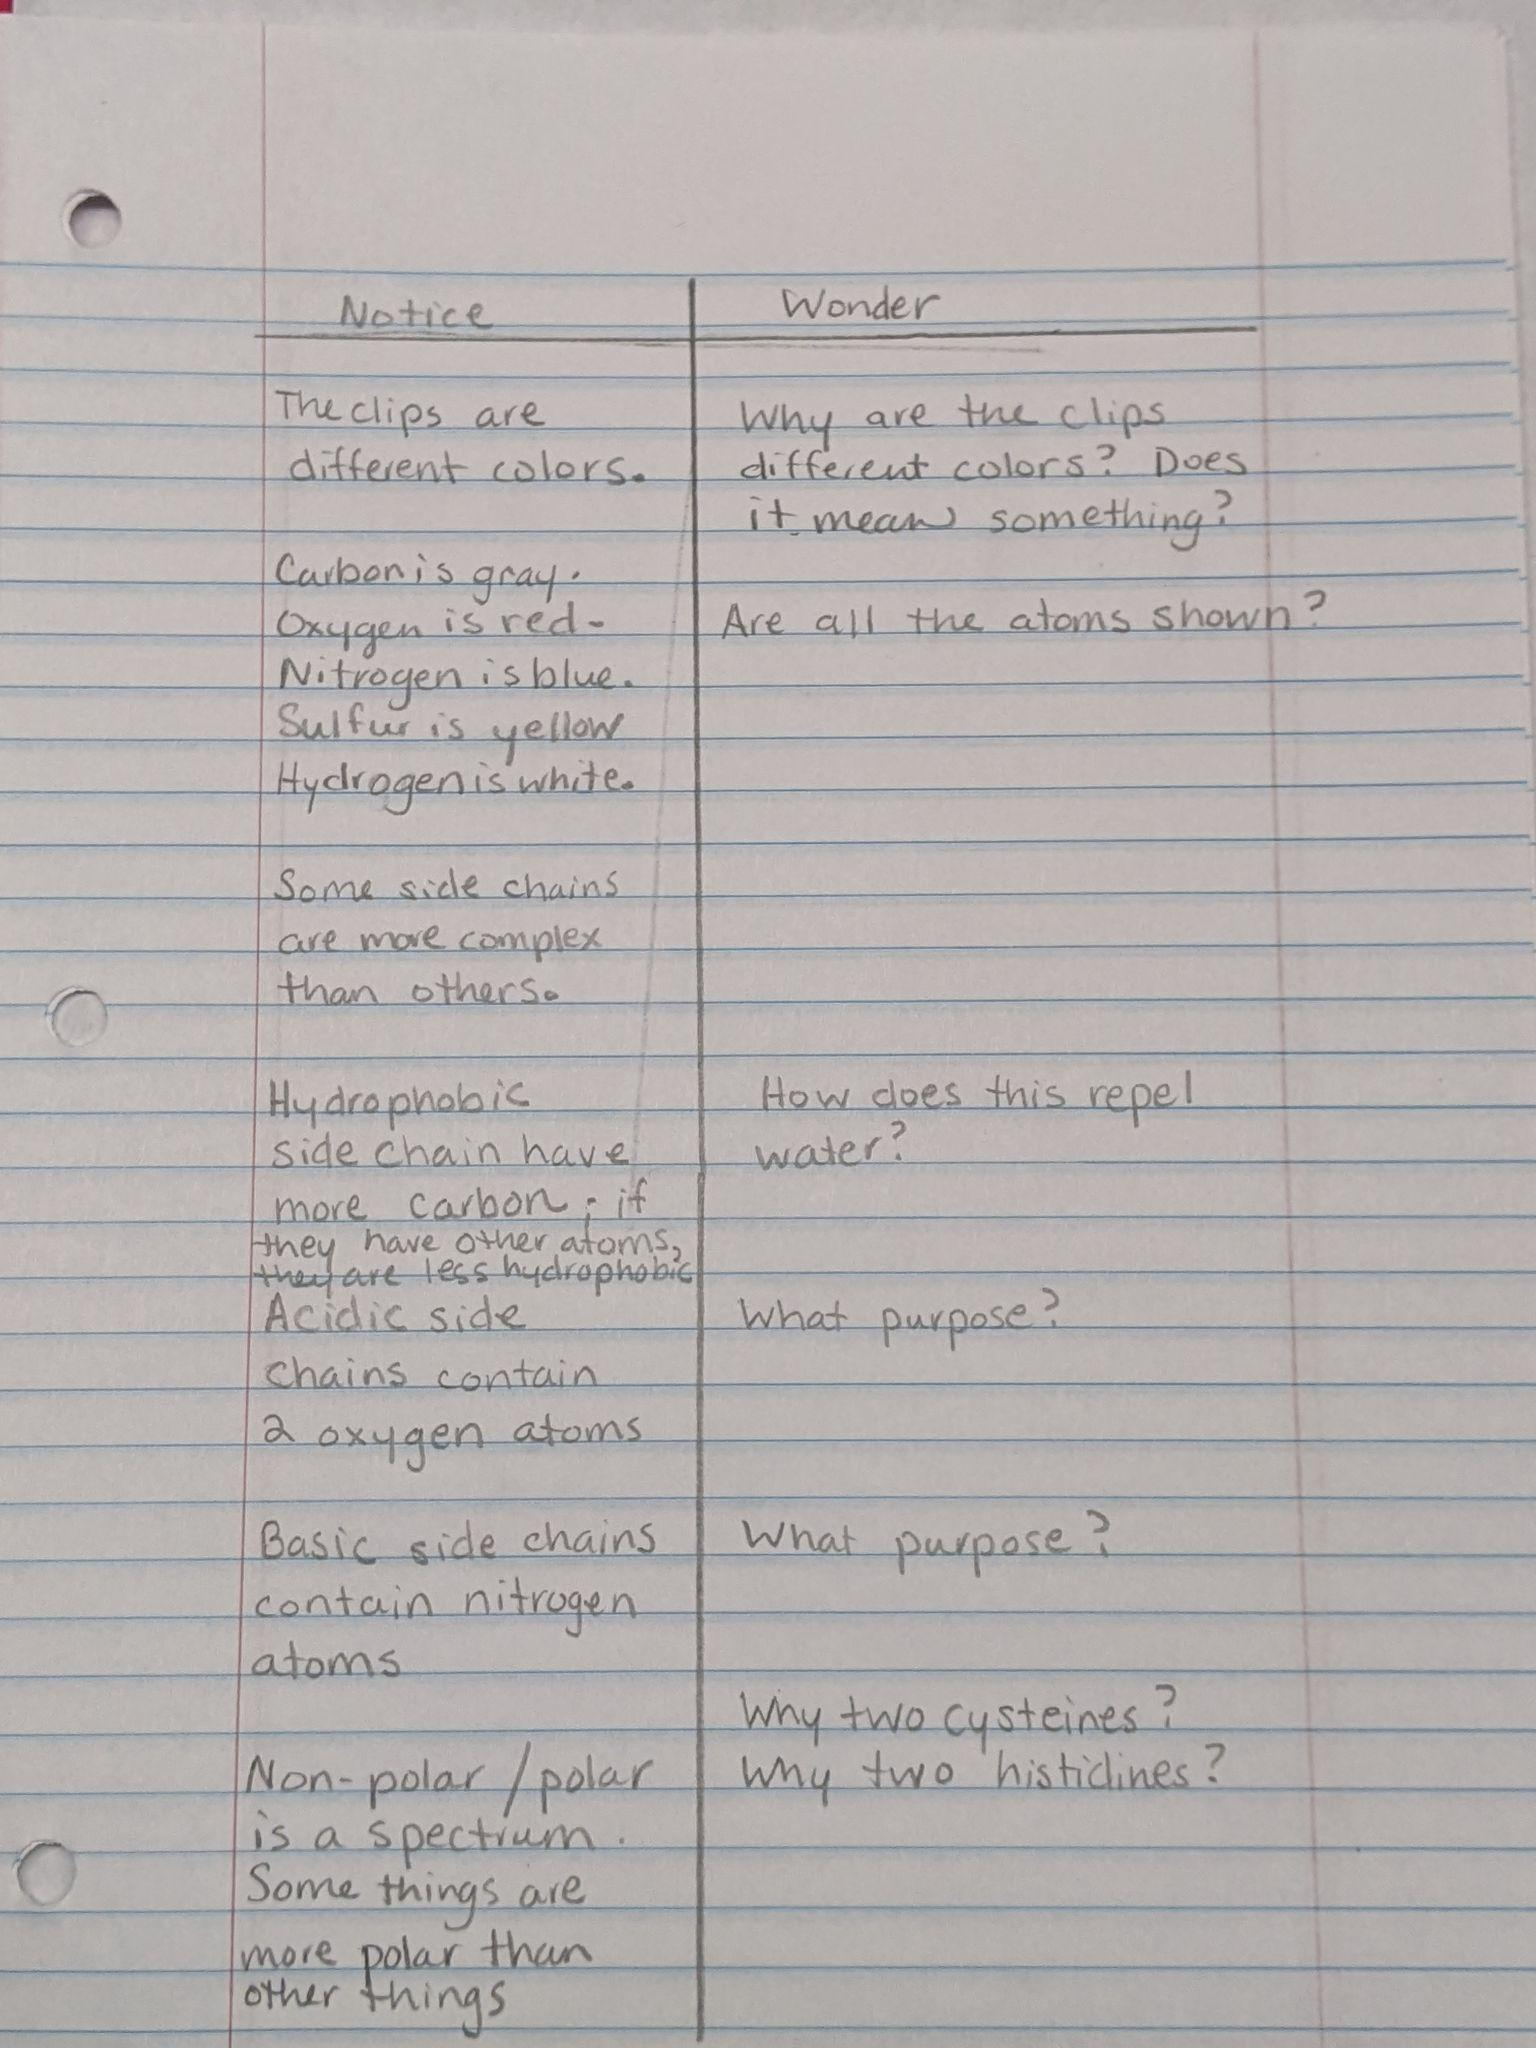 Notice
Wonder
The clips are
different colors.
Why are the clips
different colors? Does
it mean something?
Carbon is gray.
Oxygen is red.
Nitrogen is blue.
Sulfur is yellow
Hydrogen is white.
Are all the atoms shown?
Some side chains
are more complex
than others.
Hydrophobic
side chain have
more carbon; if
they have other atoms,
they are less hydrophobic
How does this repel
water?
Acidic side
chains contain
2 oxygen atoms
What purpose?
Basic side chains
contain nitrogen
atoms
What purpose?
Why two cysteines?
Why two histidines?
Non-polar/polar
is a spectrum.
Some things are
more polar than
other things